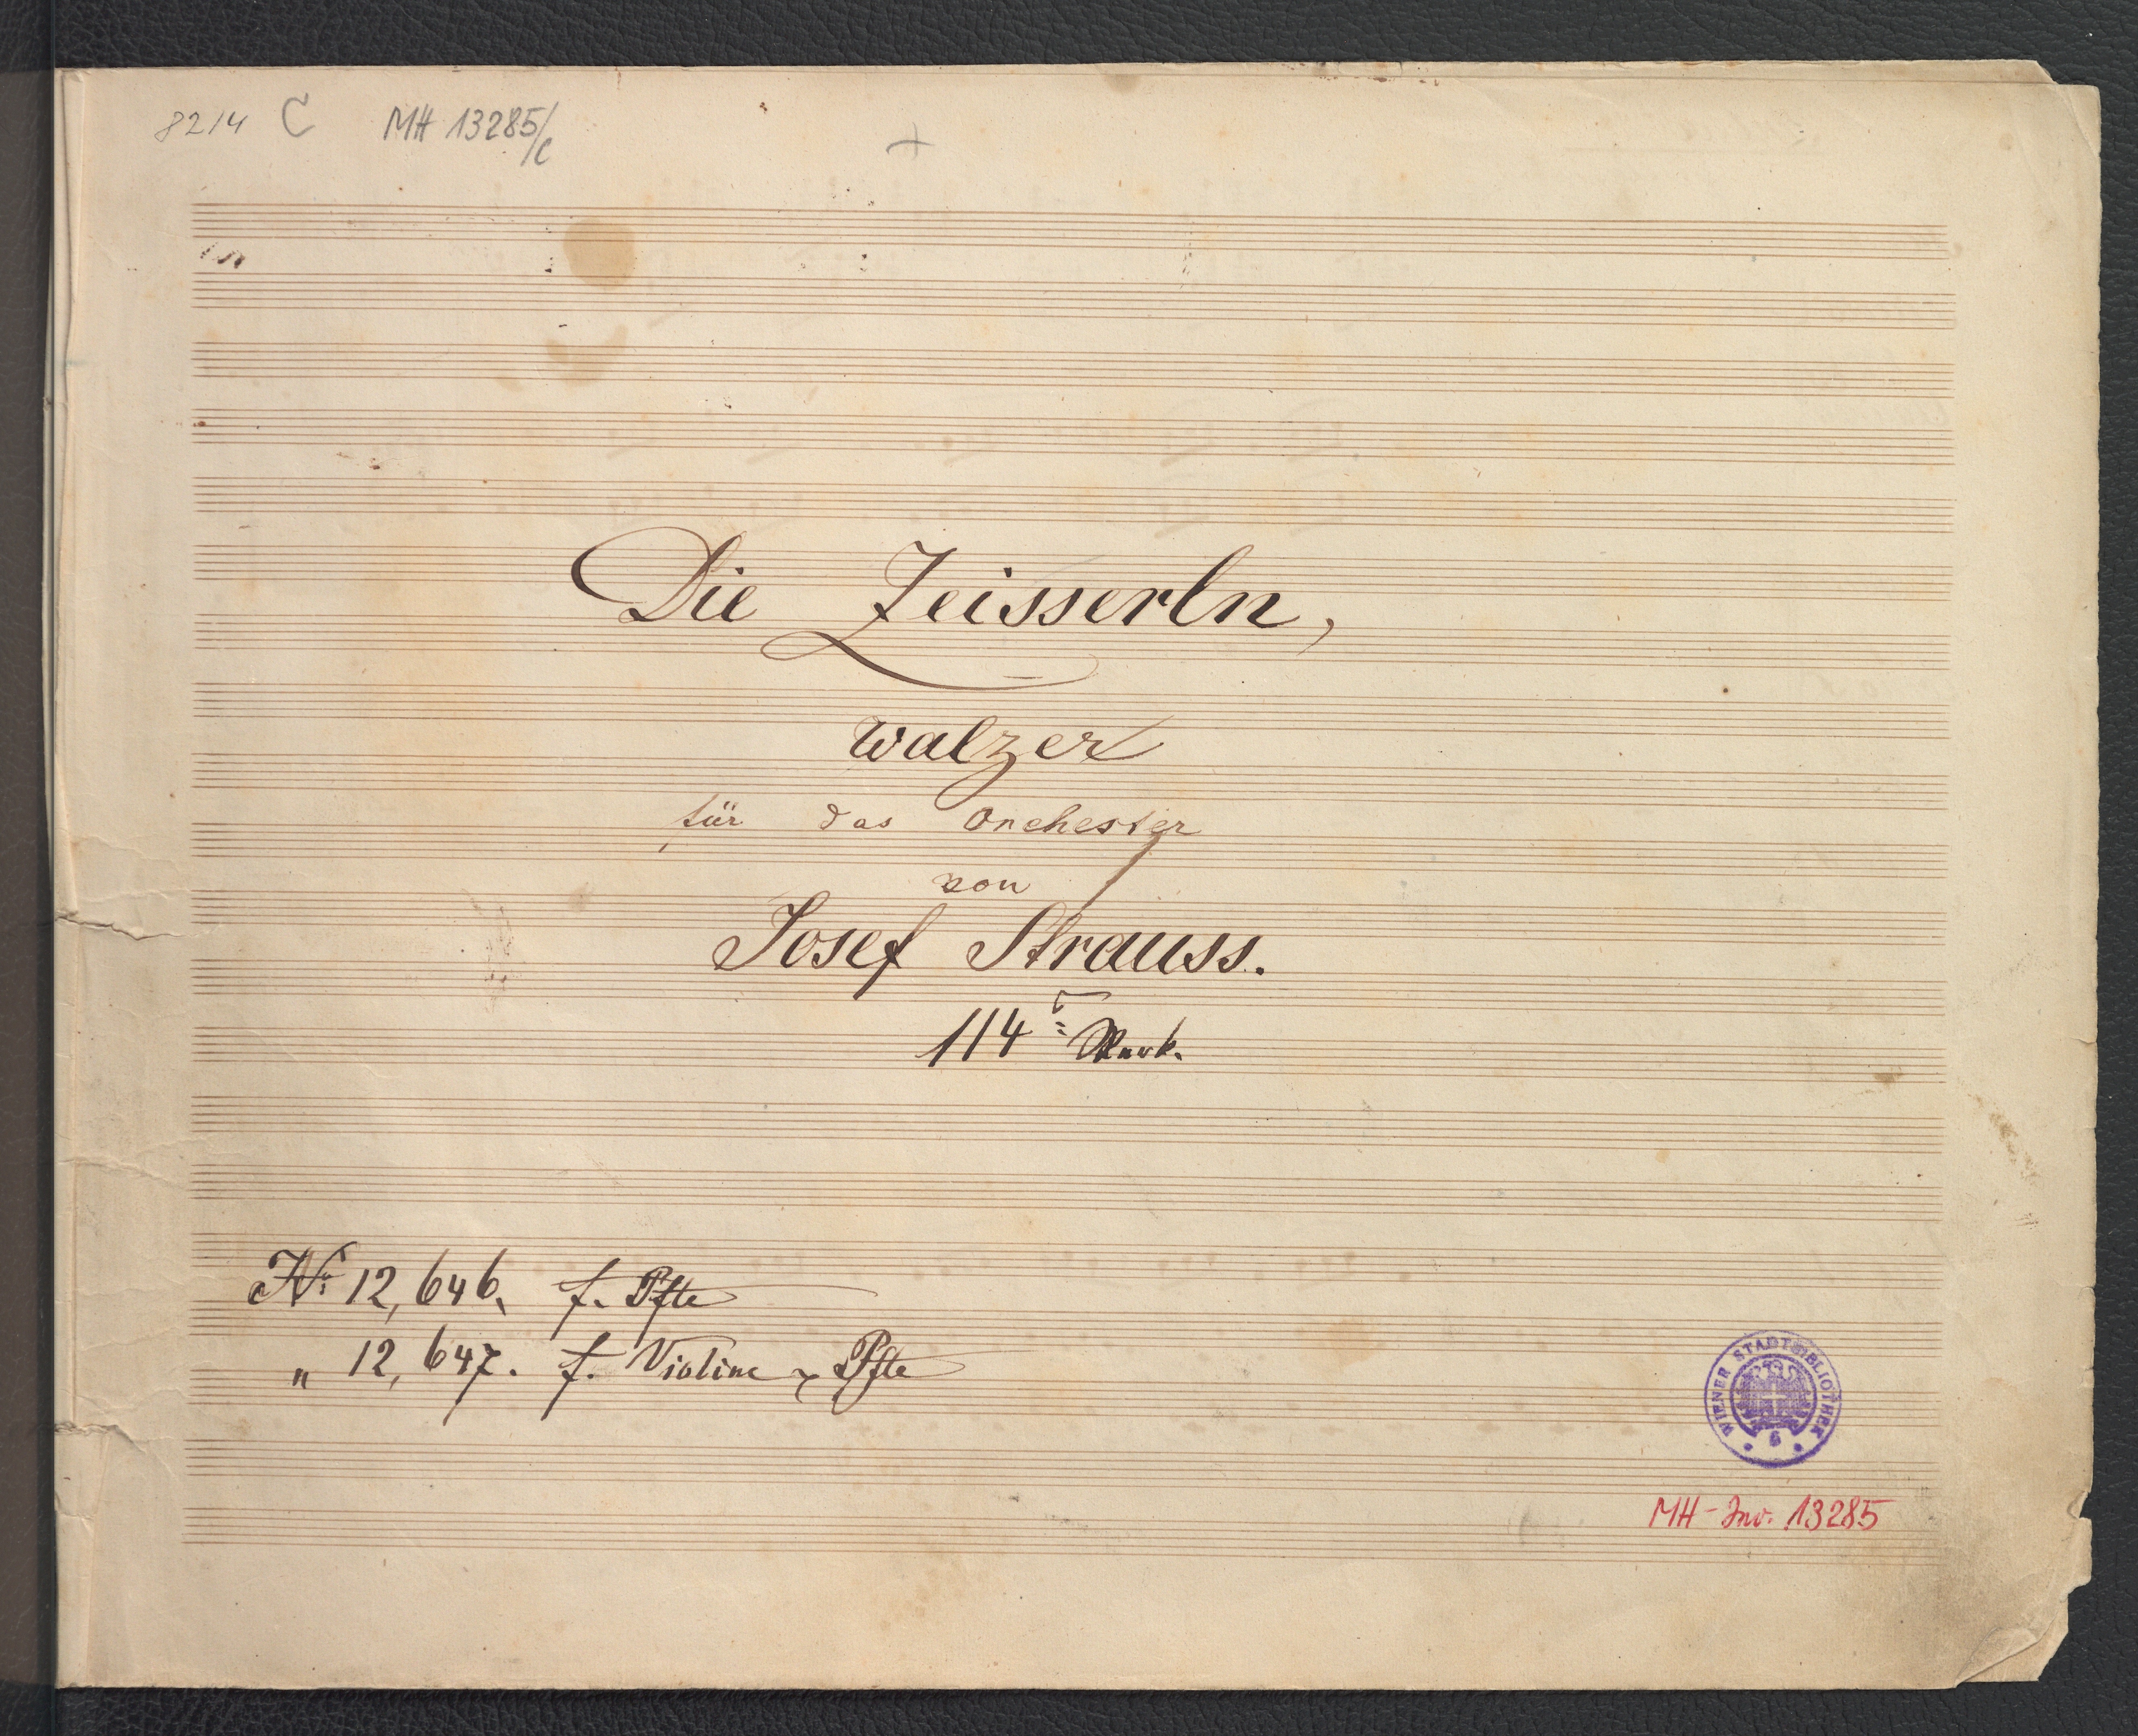 8214 C MH 13285/c
+
Die Zeisserln,
Walzer
für das Orchester
von
Josef Strauss.
114tes Werk.
No 12,646. f. Pfte
" 12,647. f. Violine & Pfte
WIENER STADTBIBLIOTHEK
MH-Inv. 13285